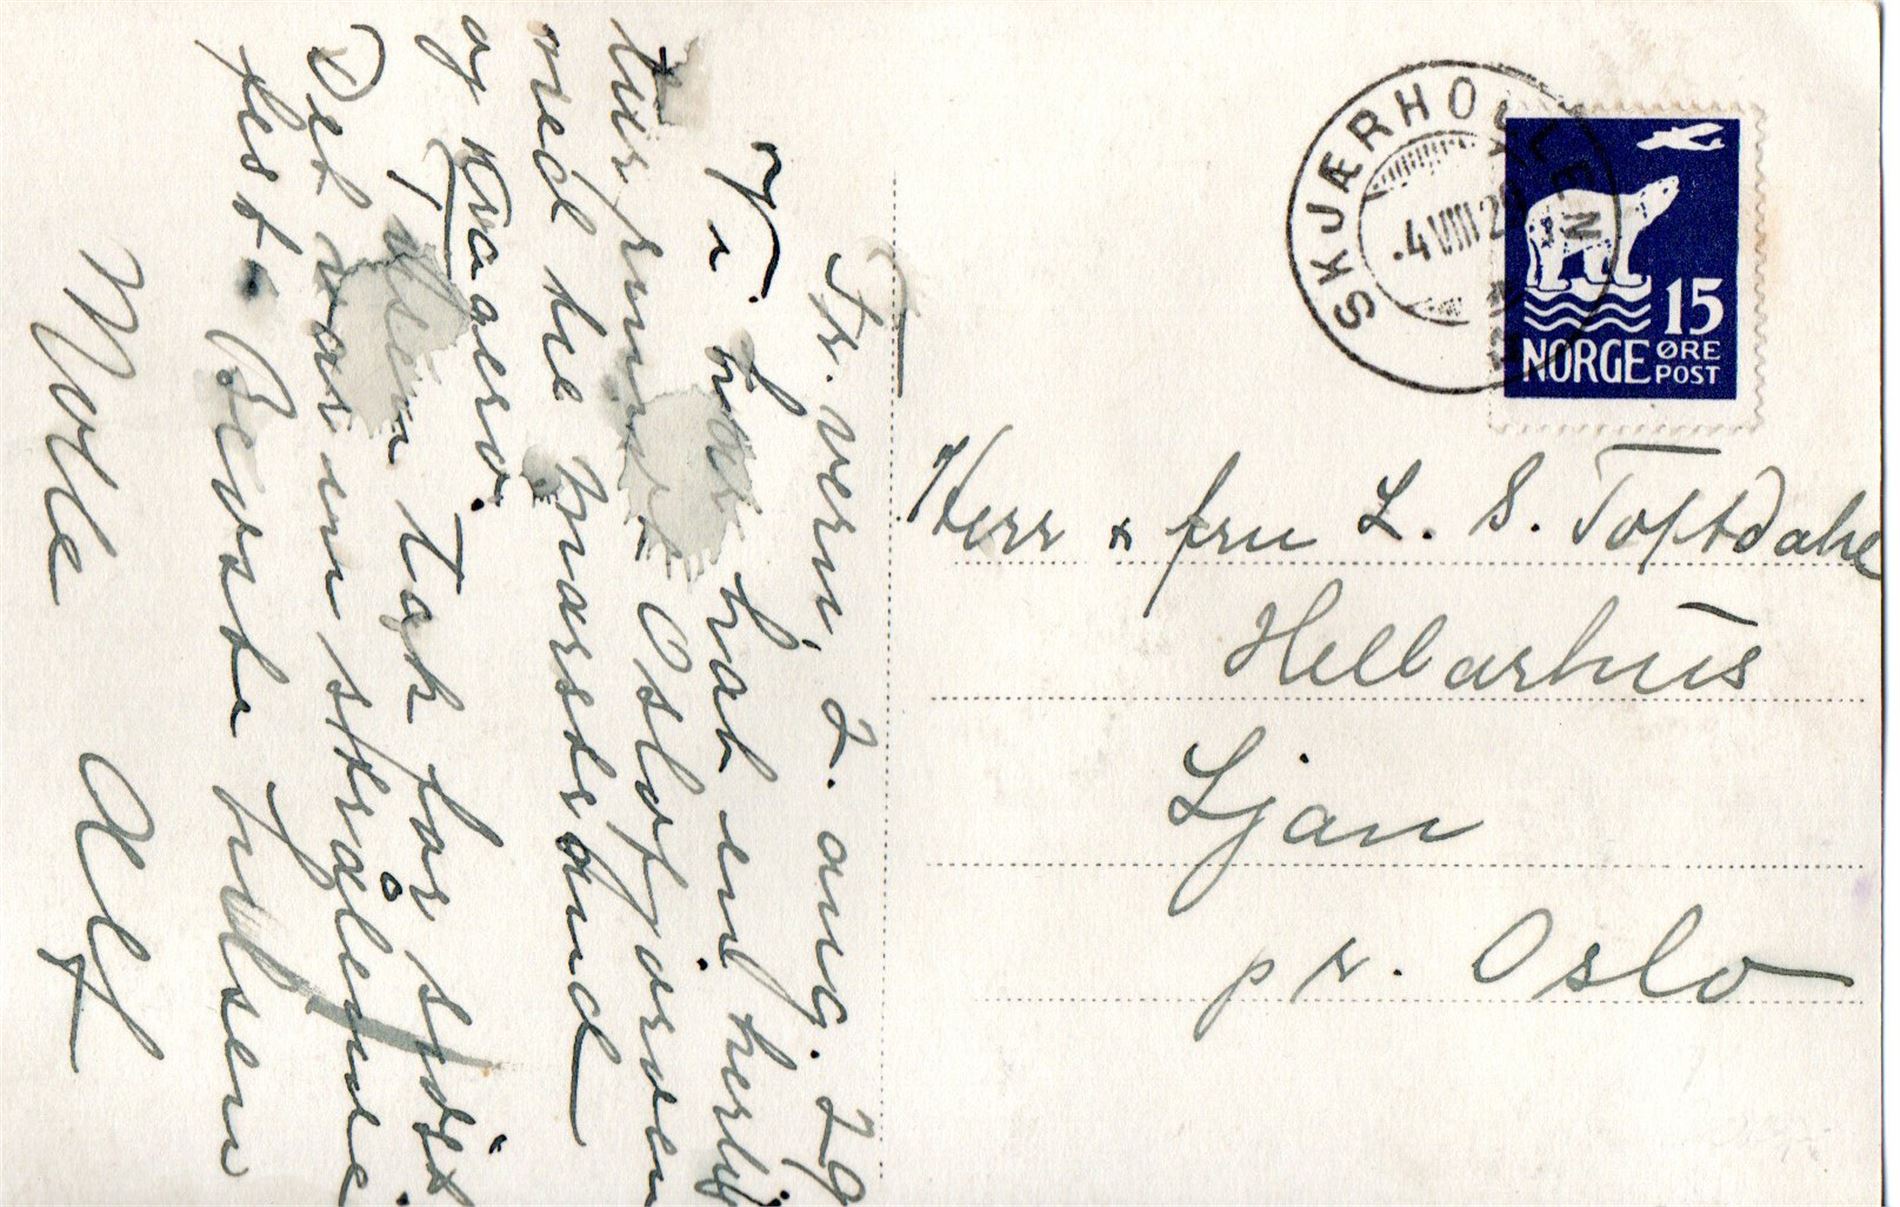 Tr. vern, 2. aug. 29
Vi har hat en herlig
tur rundt Oslofjorden
med he Marstrand
og Kragerø.
Ellen tak for sidst
Det var en strålende
fest. Beste hilsen
Molle Alf
SKJÆRHOLLEN
4 VIII 29
15
NORGE ØRE
POST
Herr & fru L. S. Toftdahl
Hellarhus
Ljan
pr. Oslo